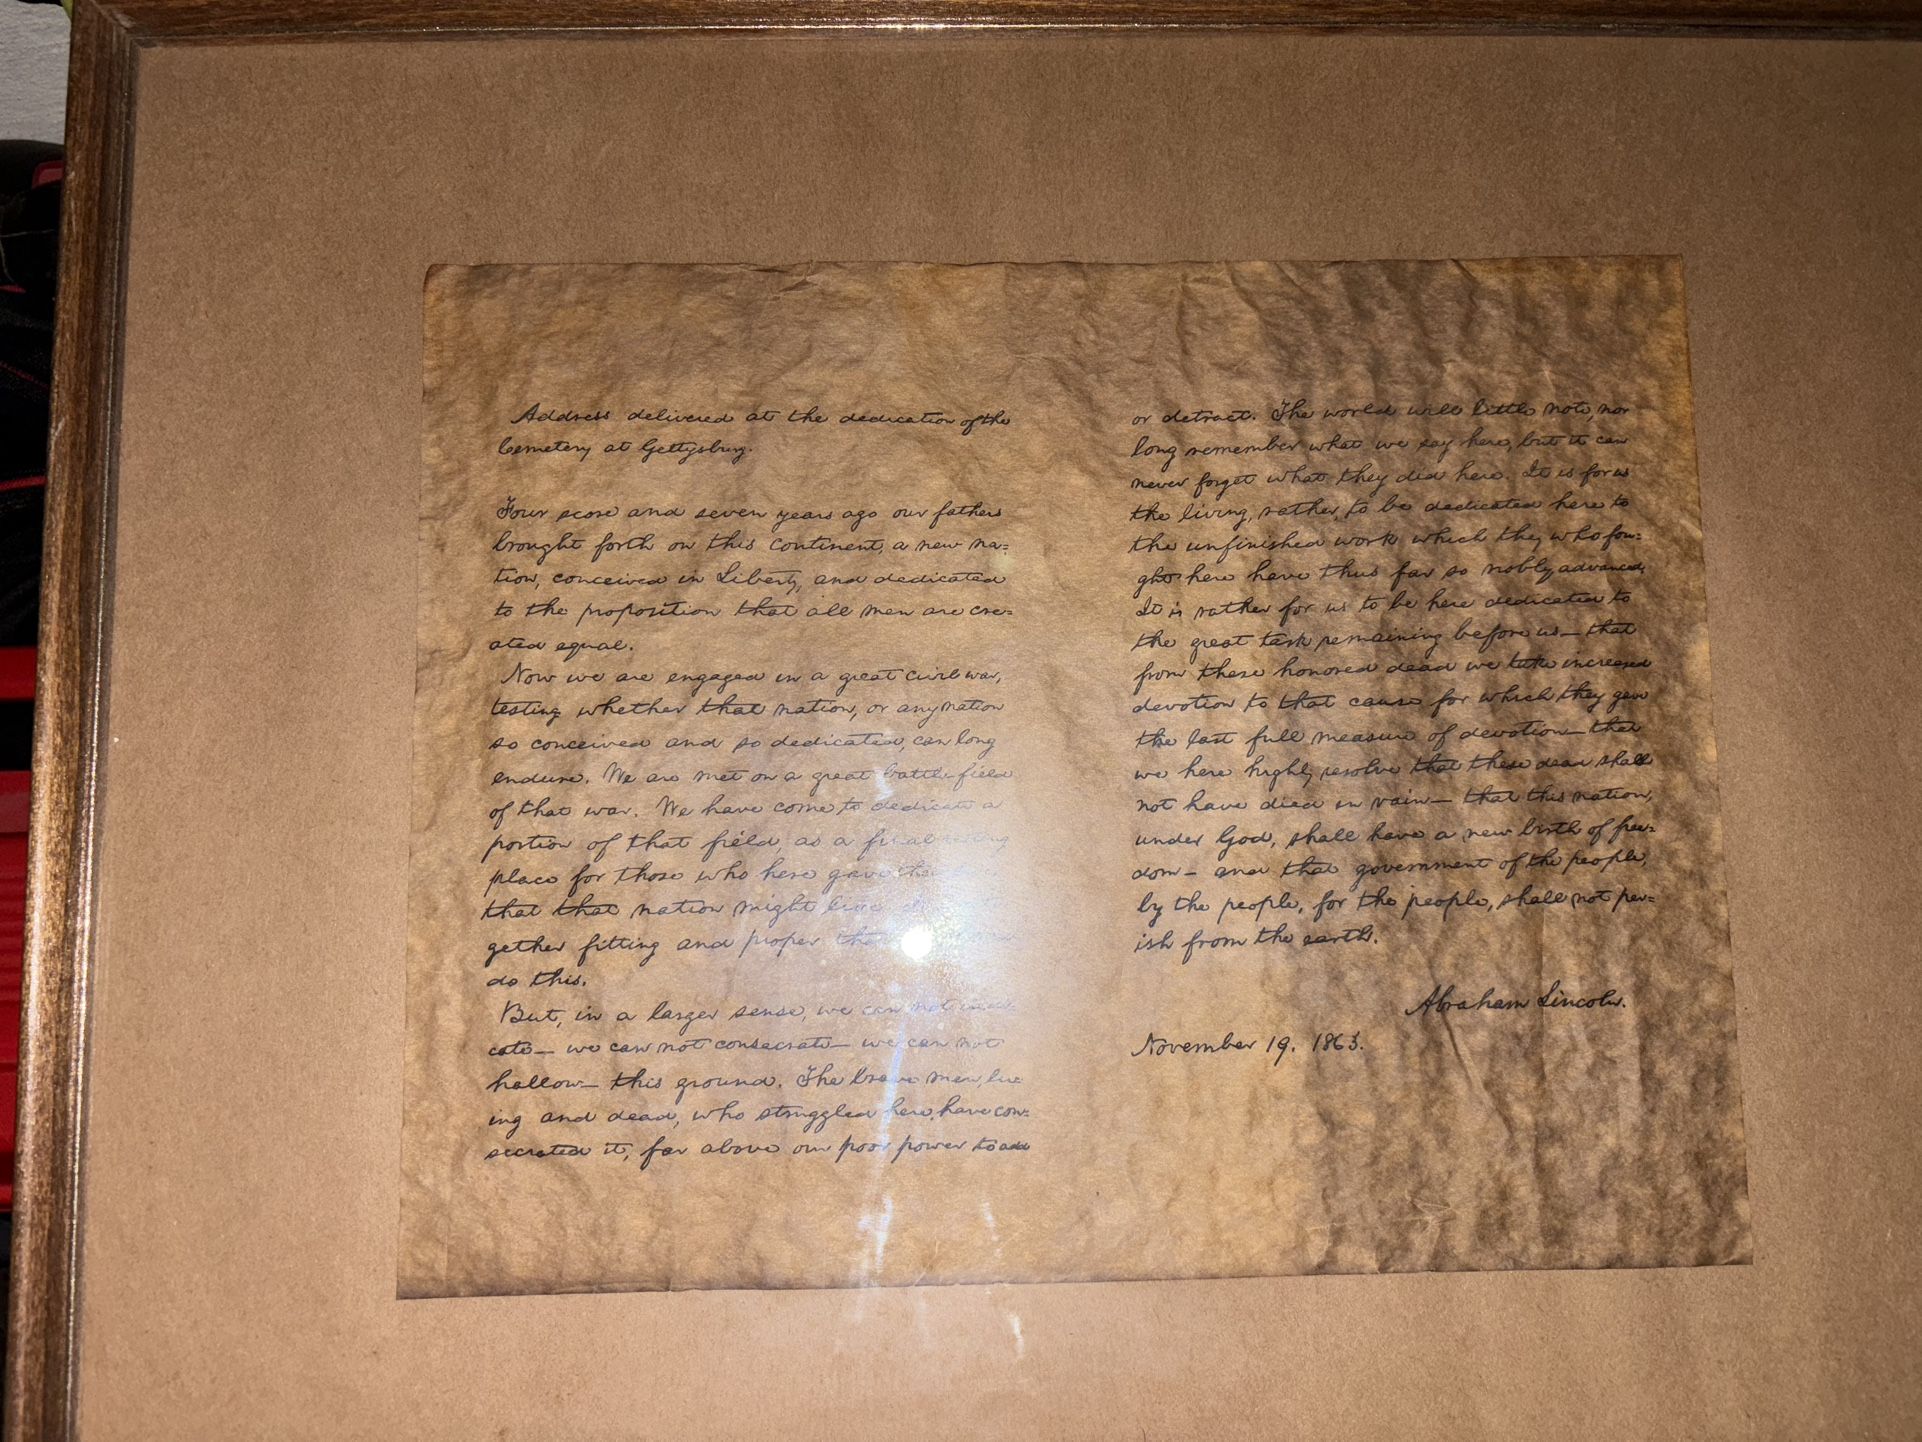 Address delivered at the dedication of the
Cemetery at Gettysburg.
Four score and seven years ago our fathers
brought forth on this continent, a new na=
tion, conceived in Liberty, and dedicated
to the proposition that all men are cre=
ated equal.
Now we are engaged in a great civil war,
testing whether that nation, or any nation
so conceived and so dedicated, can long
endure. We are met on a great battle-field
of that war. We have come to dedicate a
portion of that field, as a final resting
place for those who here gave
that that nation might live
gether fitting and proper that
do this.
But, in a larger sense, we can not
cate— we can not consecrate— we can not
hallow— this ground. The brave men, liv=
ing and dead, who struggled here, have con=
secrated it, far above our poor power to add
or detract. The world will little note, nor
long remember what we say here, but it can
never forget what they did here. It is for us
the living, rather, to be dedicated here to
the unfinished work which they who fou=
ght here have thus far so nobly advanced.
It is rather for us to be here dedicated to
the great task remaining before us— that
from these honored dead we take increased
devotion to that cause for which they gave
the last full measure of devotion— that
we here highly resolve that these dead shall
not have died in vain— that this nation,
under God, shall have a new birth of free=
dom— and that government of the people,
by the people, for the people, shall not per=
ish from the earth.
Abraham Lincoln.
November 19. 1863.